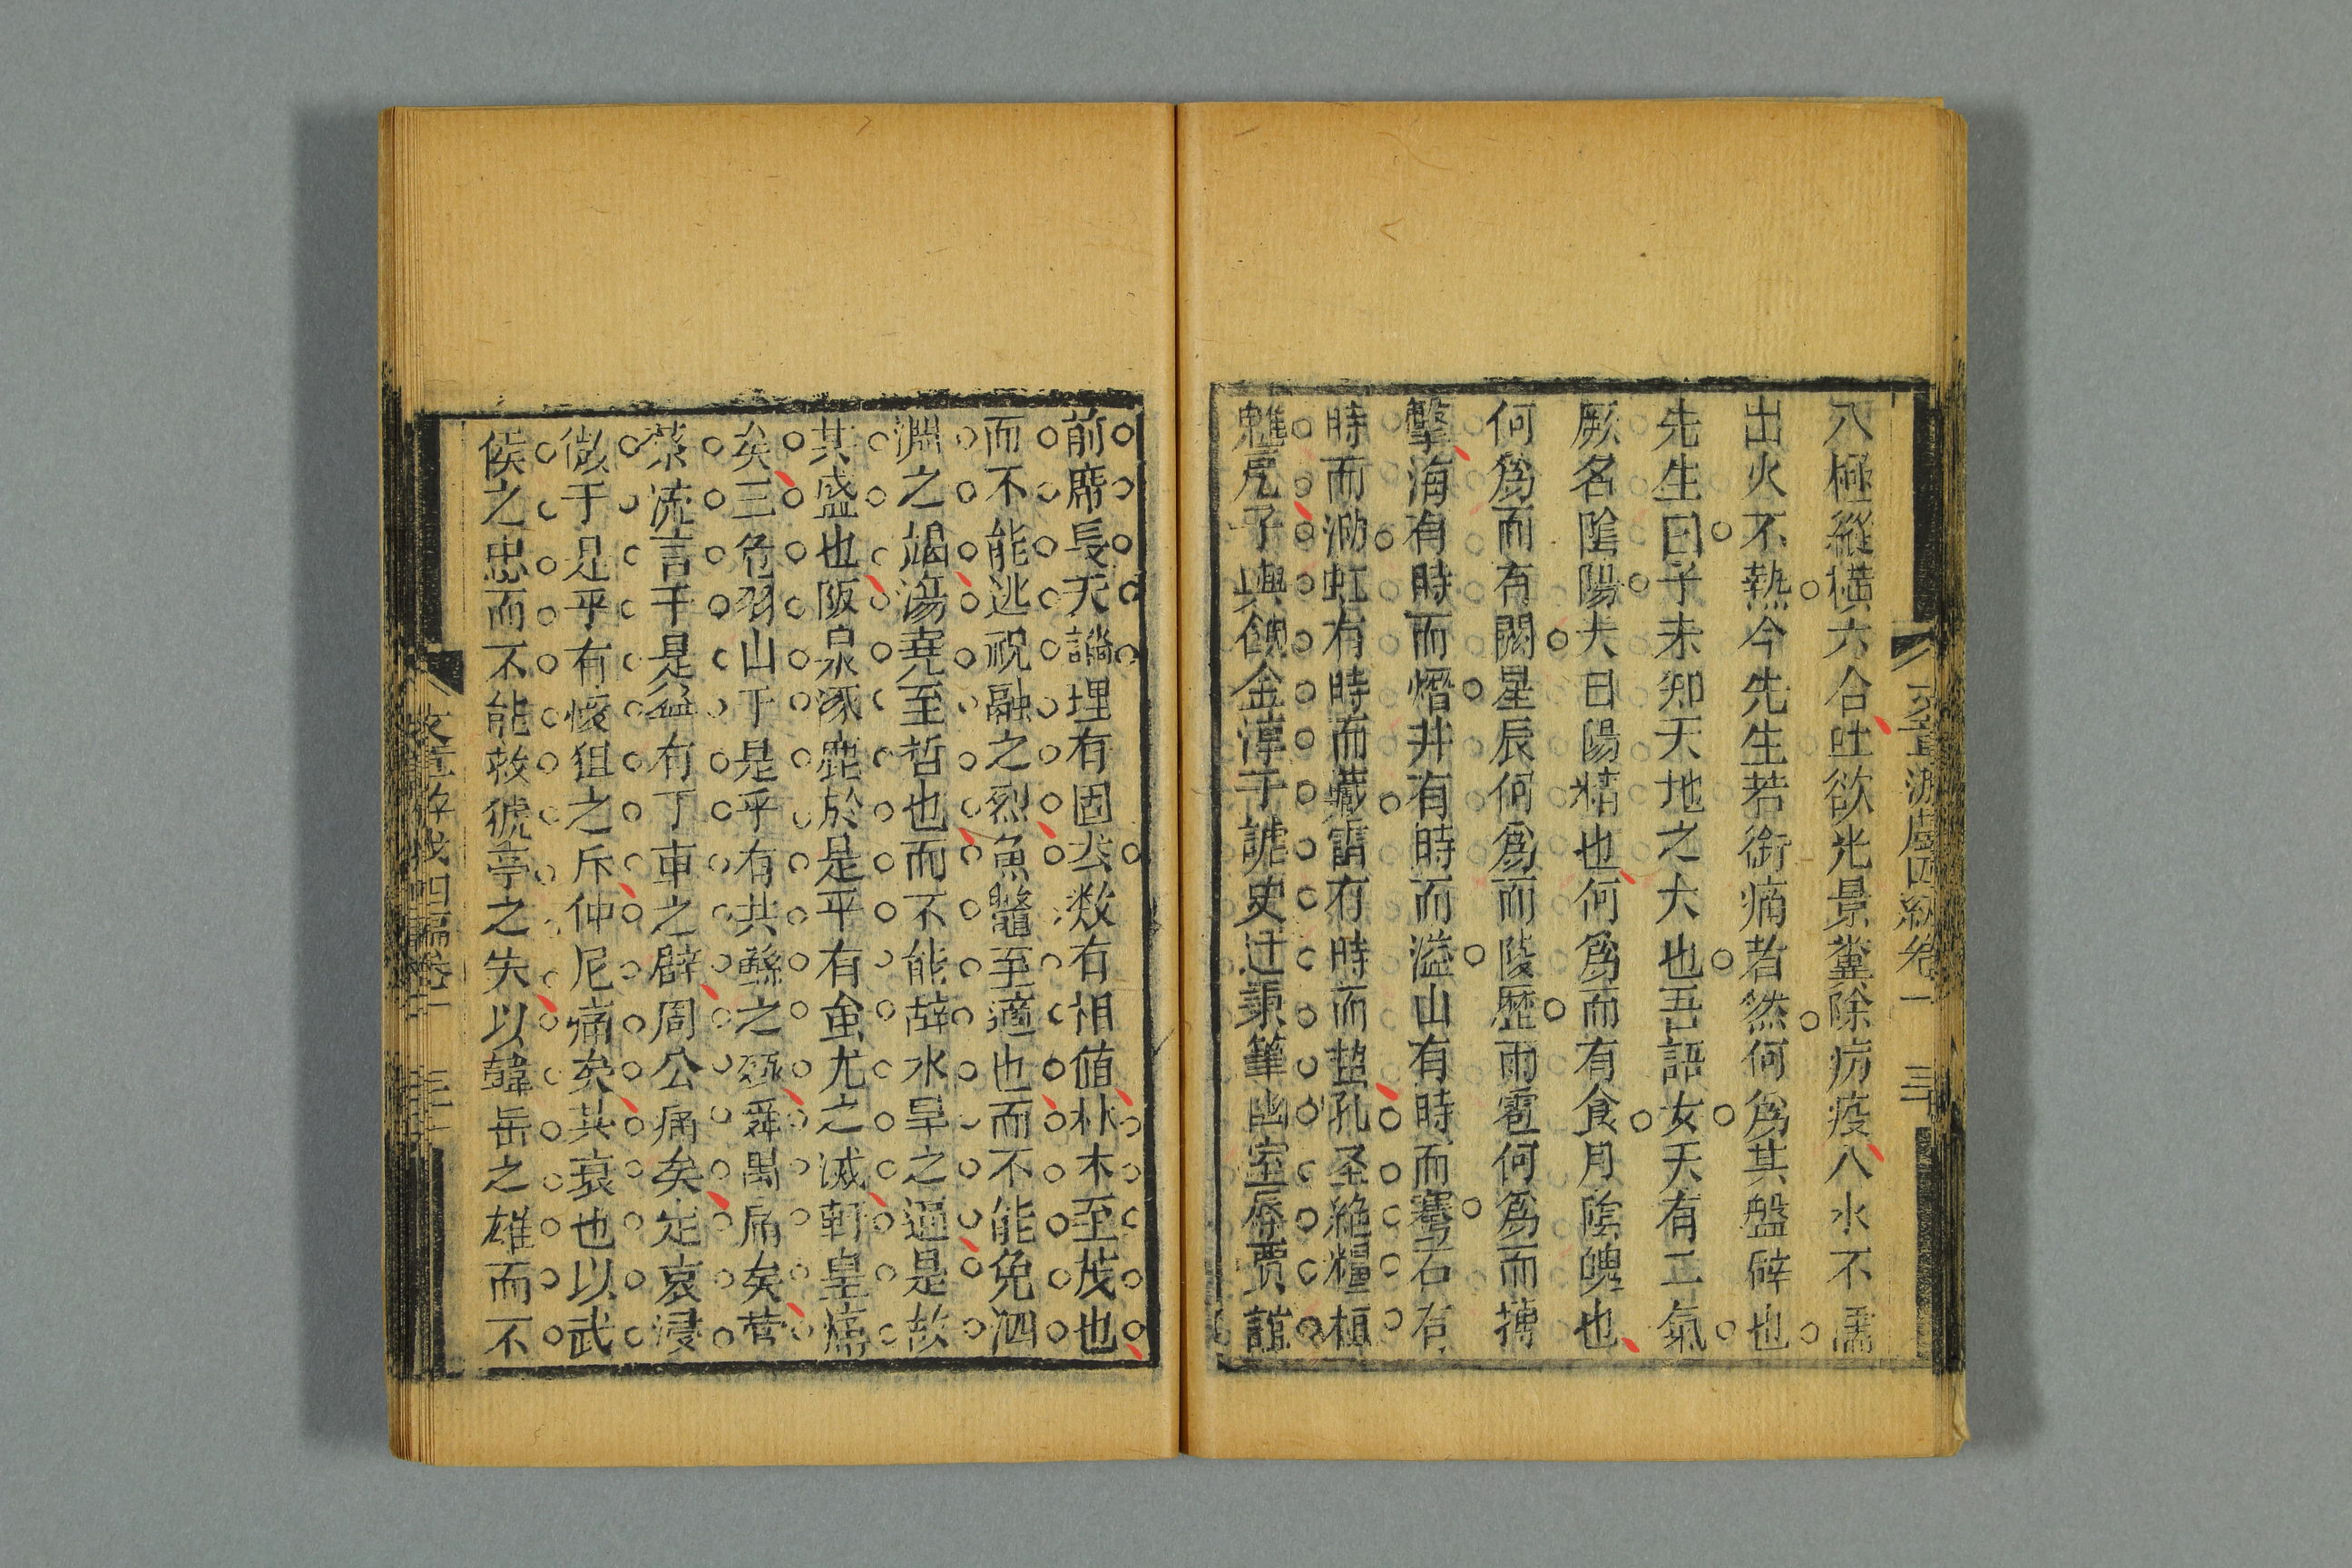 八極縱橫六合吐欲光景糞除疠疫八水不濡
出火不熱今先生若銜痛若然何爲其盤辟也
先生曰子未卿天地之大也吾語女天有二氣
厥名陰陽夫日陽精也何爲而有食月陰魄也
何爲而有闕星辰何爲而陵歷雨雹何爲而摶
擊海有時而熸井有時而溢山有時而騫石有
時而泐虹有時而藏雷有時而蟄孔圣絶糧桓
魋扈子輿飮金淳于謗史迁操筆幽室辱賈誼
前席長天謫埋有固公数有相値朴木至茂也
而不能逃祝融之烈魚鼈至適也而不能免泗
淵之竭湯堯至哲也而不能辞水旱之逼是故
其盛也阪泉涿鹿於是乎有蚩尤之滅軒皇痛
矣三危羽山于是乎有共鯀之殛舜禹痛矣菅
蔡流言于是益有丁東之辟周公痛矣定哀浸
微于是乎有㥄狙之斥仲尼痛矣其衰也以武
侯之忠而不能救猇亭之失以韓岳之雄而不
文章游戲四編卷一 三